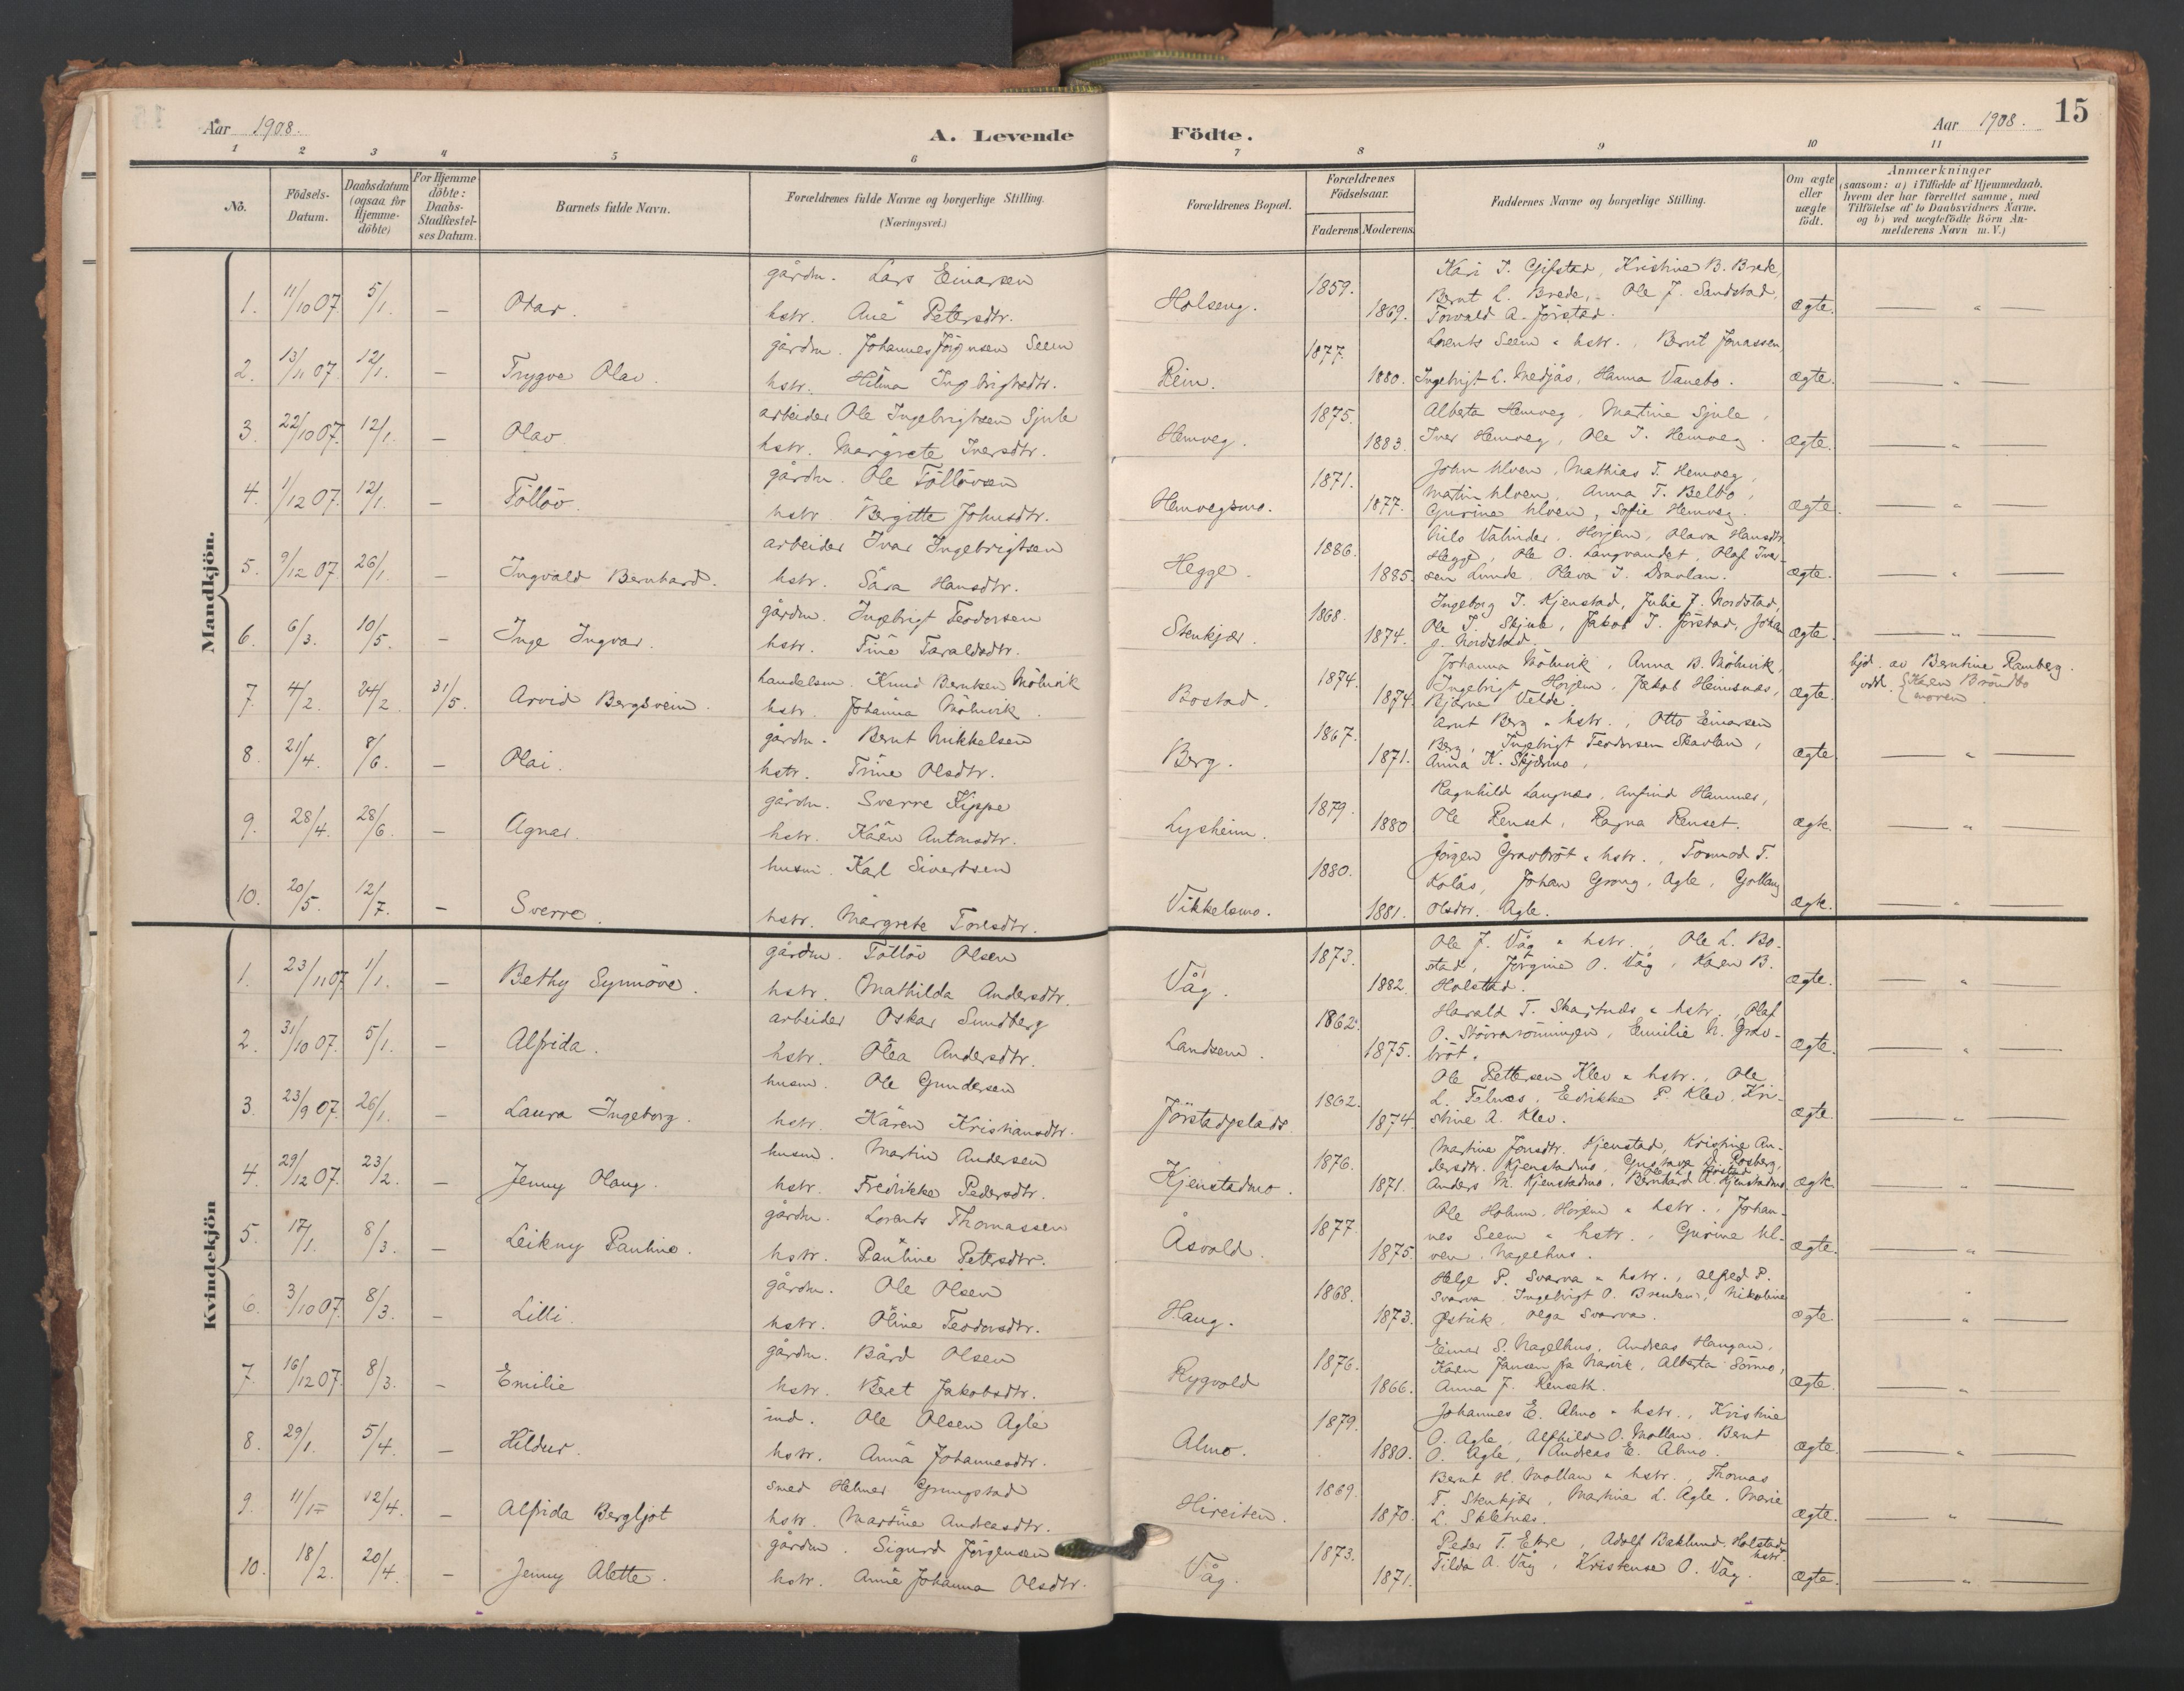 Aar 1908.
A. Levende Födte.
Aar 1908.
15
1 2 3 4 5 6 7 8 9 10 11
No.
Födsels-
Datum.
Daabsdatum
(ogsaa for
Hjemme-
döbte)
For Hjemme
döbte:
Daabs-
Stadfæstel-
ses Datum.
Barnets fulde Navn.
Forældrenes fulde Navne og borgerlige Stilling.
(Næringsvei.)
Forældrenes Bopæl.
Forældrenes
Födselsaar.
Faderens Moderens
Faddernes Navne og borgerlige Stilling.
Om ægte
eller
uægte
födt.
Anmærkninger
(saasom: a) i Tilfælde af Hjemmedaab,
hvem der har forrettet samme, med
Tilföielse af to Daabsvidners Navne.
og b) ved uægtefödte Börn An-
melderens Navn m. V.)
Mandkjön.
1. 11/10 07. 5/1. — Otar.
gårdm. Lars Einarsen
hstr. Ane Petersdtr.
Holseng. 1859. 1869.
Kari T. Gifstad, Kristine B. Brede,
Bernt L. Brede, Ole J. Sandstad,
Torvald A. Jörstad.
ægte. — " —
2. 13/11 07. 12/1. — Trygve Olav.
gårdm. Johannes Jörgensen Seem
hstr. Hilma Ingebrigtsdtr.
Rein. 1877. 1880.
Lorents Seem & hstr., Bernt Jonassen,
Ingebrigt L. Medjås, Hanna Vanebo.
ægte. — " —
3. 22/10 07. 12/1. — Olav.
arbeider Ole Ingebrigtsen Sjule
hstr. Margrete Iversdtr.
Hemveg. 1875. 1883.
Alberta Hemveg, Martine Sjule,
Iver Hemveg, Ole I. Hemveg.
ægte. — " —
4. 1/12 07. 12/1. — Tollöv.
gårdm. Ole Tollövsen
hstr. Bergitte Johnsdtr.
Hemvegsmo. 1871. 1877.
John Ulven, Mathias T. Hemveg,
Martin Ulven, Anna T. Belbo,
Gurine Ulven, Sofie Hemveg.
ægte. — " —
5. 9/12 07. 26/1. — Ingvald Bernhard.
arbeider Ivar Ingebrigtsen
hstr. Sara Hansdtr.
Hegge. 1886. 1885.
Nils Valinder, Horjem, Olava Hansdtr.
Hegge, Ole O. Langvandet, Olaf Iver-
sen Lunde,
ægte. — " —
6. 6/3. 10/5. — Inge Ingvar.
gårdm. Ingebrigt Teodorsen
hstr. Tine Taraldsdtr.
Stenkjær. 1868. 1874.
Ingeborg T. Kjenstad, Julie J. Nordstad,
Ole T. Jakob T. Jörstad, Johan
J. Nordstad.
ægte. — " —
7. 4/2. 24/2. 31/5. Arvid Bergsvein.
handelsm. Knud Berntsen Mölnvik
hstr. Johanna Mölnvik.
Bostad. 1874. 1874.
Johanna Mölnvik, Anna B. Mölnvik,
Ingebrigt Horjem, Jakob Heimsnæs,
Bjarne Velde.
ægte.
hjd. av Berntine Ramberg.
vdd. {Karen Bröndbo
{moren
8. 21/4. 8/6. — Olai.
gårdm. Bernt Mikkelsen
hstr. Trine Olsdtr.
Berg. 1867. 1871.
Arnt Berg & hstr., Otto Einarsen
Berg, Ingebrigt Teodorsen Skavlan,
Anna K.
ægte — " —
9. 28/4. 28/6. — Agnar.
gårdm. Sverre Kippe
hstr. Karen Antonsdtr.
Lysheim. 1879. 1880
Ragnhild Langnæs, Anfind Hammer,
Ole Renset, Ragna Renset.
ægte. — " —
10. 20/5. 12/7. — Sverre.
husm. Karl Sivertsen
hstr. Margrete Torisdtr.
Vikkelsmo. 1880. 1881.
Jörgen Gravbröt & hstr., Tormod T.
Kolås, Johan Grong, Agle,
Olsdtr. Agle.
ægte. — " —
Kvindekjön
1. 23/11 07 1/1. — Bethy Synnöve.
gårdm. Tollöv Olsen
hstr. Mathilda Andersdtr.
Våg. 1873. 1882.
Ole J. Våg & hstr., Ole L. Bo-
stad, Jörgine O. Våg, Karen B.
Holstad.
ægte. — " —
2. 31/10 07. 5/1. — Alfrida.
arbeider Oskar Sundberg
hstr. Olea Andersdtr.
Landsem. 1862. 1875.
Harald T. & hstr., Olaf
O. Emilie N. Grav-
bröt.
ægte. — " —
3. 23/9 07. 26/1. — Laura Ingeborg.
husm. Ole Gundersen
hstr. Karen Kristiansdtr.
Jörstadplads 1862. 1874.
Ole Pettersen Klev & hstr., Ole
L. Fedrikke P. Klev, Kri-
stine A. Klev.
ægte. — " —
4. 29/12 07. 23/2. — Jenny Olaug.
husm. Martin Andersen
hstr. Fredrikke Pedersdtr.
Kjenstadmo. 1876. 1871.
Martine Jonsdtr. Kjenstad, Kristine An-
dersdtr. Kjenstadmo, Gustava D. Rosberg,
Anders N. Kjenstadmo, Bernhard A. Kjenstadmo.
ægte — " —
5. 17/1. 8/3. — Leikny Pauline.
gårdm. Lorents Thomassen
hstr. Pauline Petersdtr.
Åsvold. 1877 1875.
Ole Holmen, Horjem & hstr., Johan-
nes Seem & hstr., Gurine Ul-
ven, Nagelhus.
ægte. — " —
6. 3/10 07. 8/3. — Lilli.
gårdm. Ole Olsen
hstr. Oline Teodorsdtr.
Haug. 1868. 1873.
Helge P. Svarva & hstr., Alfred P.
Svarva, Ingebrigt O. Brenden, Nikoline
Østvik, Olga Svarva.
ægte. — " —
7. 16/12 07. 8/3. — Emilie
gårdm. Bård Olsen
hstr. Beret Jakobsdtr.
Rygvold 1876. 1866.
Einar S. Nagelhus, Andreas Haugan,
Karen Jansen fra Narvik, Alberta Sörmo,
Anna J. Renseth.
ægte. — " —
8. 29/1. 5/4. — Hildur.
ind. Ole Olsen Agle
hstr. Anna Johannesdtr.
Almo. 1879. 1880.
Johannes E. Almo & hstr., Kristine
O. Agle, Alfhild O. Mollan, Bernt
O. Agle, Andreas E. Almo.
ægte. — " —
9. 11/1 12/4. — Alfrida Bergljot
smed Helmer Grungstad
hstr. Martine Andreasdtr.
Hireiten. 1869. 1870.
Bernt H. Mollan & hstr., Thomas
T. Stenkjær, Martine L. Agle, Marie
L.
ægte. — " —
10. 18/2. 20/4. — Jenny Alette.
gårdm. Sigurd Jörgensen
hstr. Anne Johanna Olsdtr.
Våg. 1873. 1871.
Peder T. Ekre, Adolf Baklund, Holstad,
hstr.
Tilda A. Våg, Kristense O. Våg.
ægte. — " —